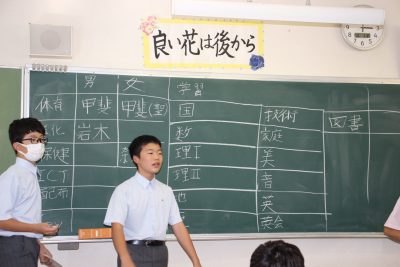 良い花は後から
男 女 学習
体育 甲斐 甲斐(聖) 国 技術 図書
化 岩木 数 家庭
保健 理I 美
ICT 理II 音
配布 地 英
英会